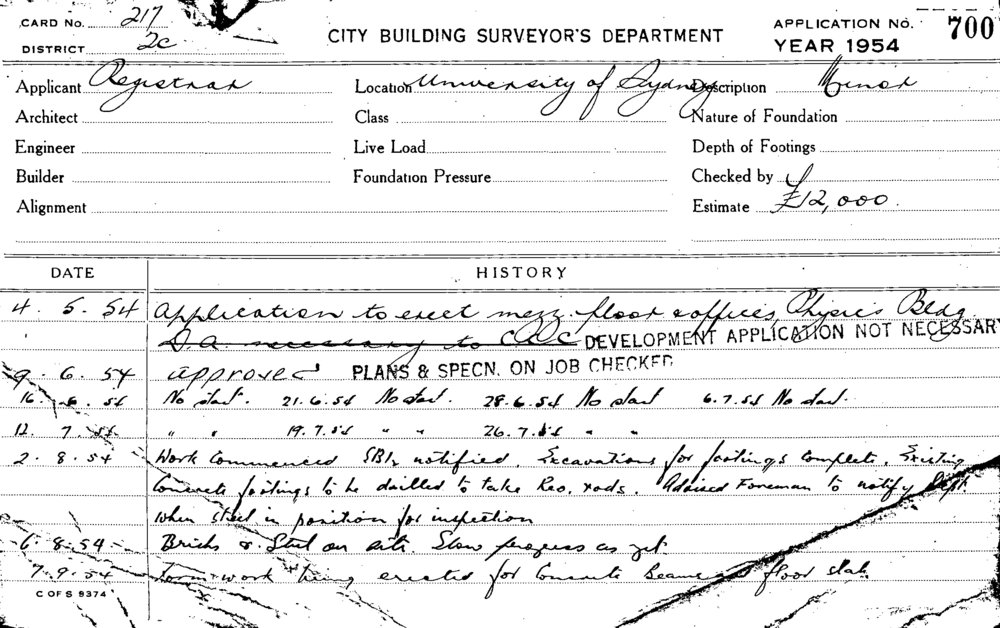 CARD No. 217
DISTRICT 2c
CITY BUILDING SURVEYOR'S DEPARTMENT
APPLICATION No. 700
YEAR 1954
Applicant Registrar Location University of Sydney Description Minor
Architect Class Nature of Foundation
Engineer Live Load Depth of Footings
Builder Foundation Pressure Checked by
Alignment Estimate £12,000.
DATE HISTORY
4. 5. 54 Application to erect mezz. floor & offices Physics Bldg
D.A. necessary to CCC DEVELOPMENT APPLICATION NOT NECESSARY
9. 6. 54 approved PLANS & SPECN. ON JOB CHECKED
16. 6. 54 No start. 21.6.54 No start. 28.6.54 No start 6.7.54 No start.
12. 7. 54 " " 19.7.54 " " 26.7.54 " "
2. 8. 54 Work Commenced notified. Excavations for footings complete. Existing
Concrete footings to be drilled to take Reo. rods. Advised Foreman to notify Dept
when steel in position for inspection
6. 8. 54 Bricks & Steel on site. Slow progress as yet.
7. 9. 54 Form-work being erected for Concrete Beams floor slab.
C OF S 9374